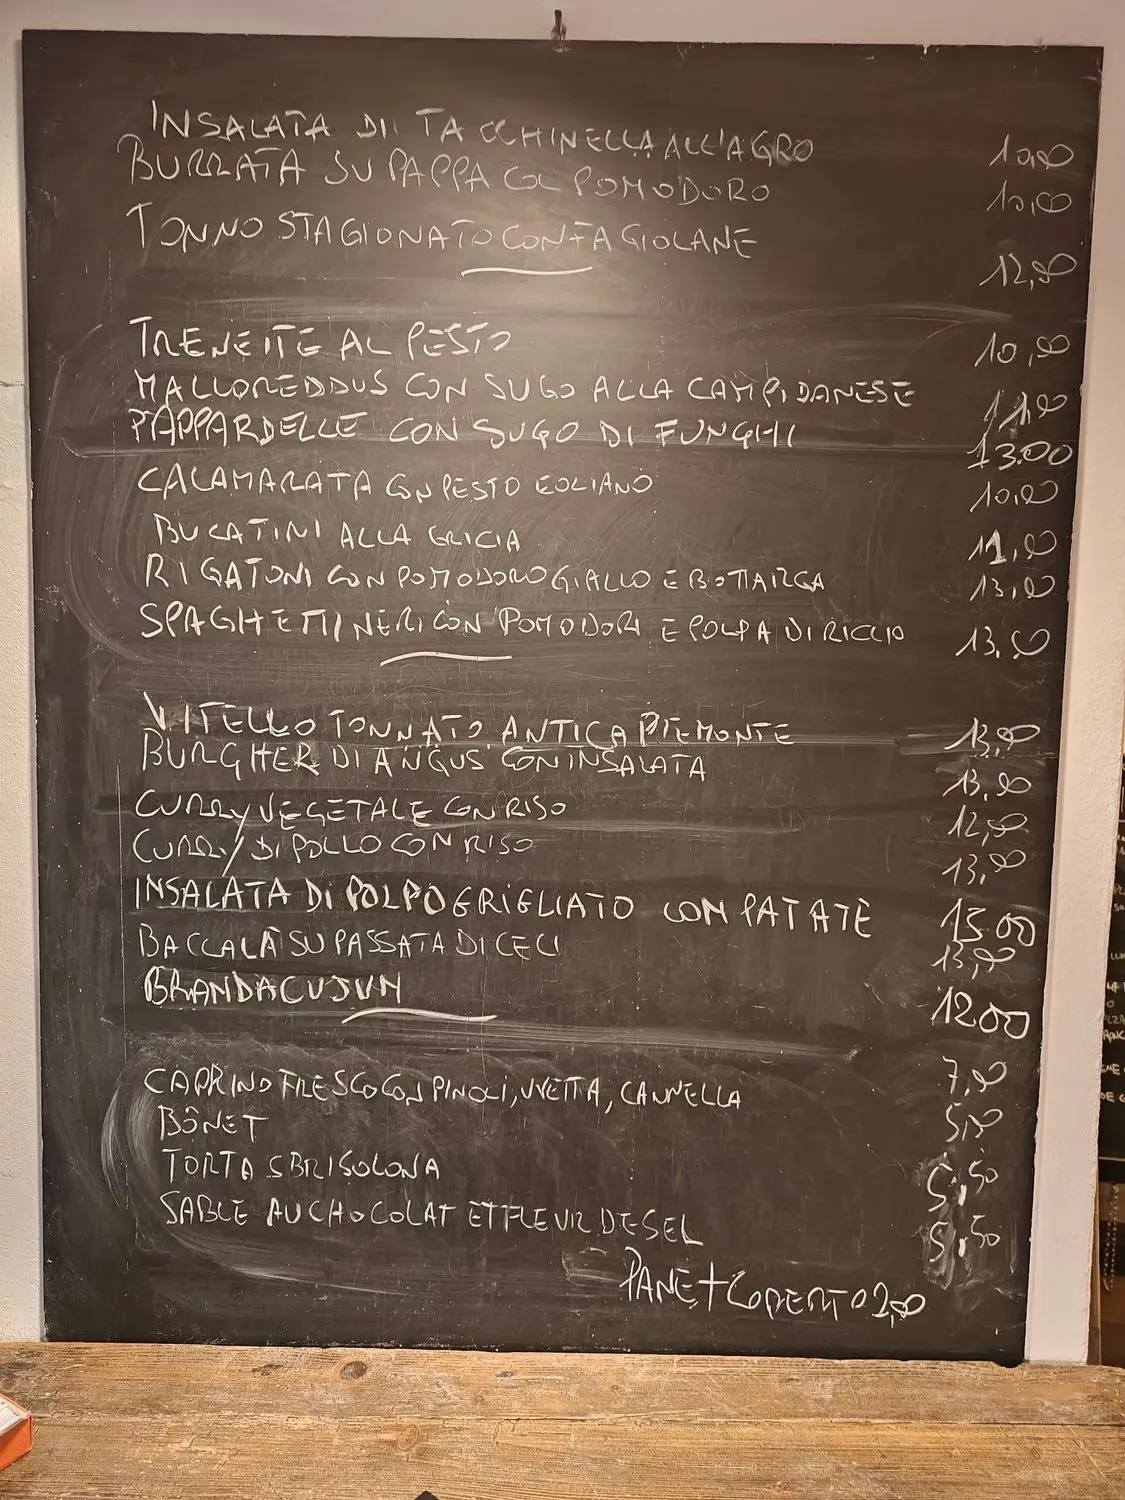 INSALATA DI TACCHINELLA ALL'AGRO 10,00
BURRATA SU PAPPA COL POMODORO 10,00
TONNO STAGIONATO CON FAGIOLANE 12,00
TRENETTE AL PESTO 10,00
MALLOREDDUS CON SUGO ALLA CAMPIDANESE 11,00
PAPPARDELLE CON SUGO DI FUNGHI 13.00
CALAMARATA CON PESTO EOLIANO 10,00
BUCATINI ALLA GRICIA 11,00
RIGATONI CON POMODORO GIALLO E BOTTARGA 13,00
SPAGHETTI NERI CON POMODORI E POLPA DI RICCIO 13,00
VITELLO TONNATO ANTICA PIEMONTE 13,00
BURGHER DI ANGUS CON INSALATA 13,00
CURRY VEGETALE CON RISO 12,00
CURRY DI POLLO CON RISO 13,00
INSALATA DI POLPO GRIGLIATO CON PATATE 15.00
BACCALÀ SU PASSATA DI CECI 13,00
BRANDACUJUN 12.00
CAPRINO FRESCO CON PINOLI, UVETTA, CANNELLA 7,00
BÔNET 5,00
TORTA SBRISOLONA 5,50
SABLE AU CHOCOLAT ET FLEUR DE SEL 5,50
PANE + COPERTO 2,00